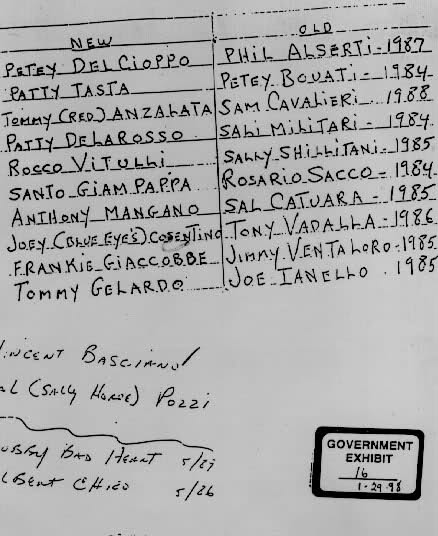 NEW OLD
PETEY DELCIOPPO PHIL ALSERTI - 1987
PATTY TASTA PETEY BOVATI - 1984
TOMMY (RED) ANZALATA SAM CAVALIERI 1988
PATTY DELAROSSO SALI MILITARI - 1984
ROCCO VITULLI SALLY SHILLITANI - 1985
SANTO GIAMPAPPA ROSARIO SACCO - 1984
ANTHONY MANGANO SAL CATUARA - 1985
JOEY (BLUE EYE'S) COSENTINO TONY VADALLA - 1986
FRANKIE GIACCOBBE JIMMY VENTALORO - 1985
TOMMY GELARDO JOE IANELLO . 1985
INCENT BASCIANO
AL (SALLY HORSE) POZZI
UBBY BAD HEART 5/27
LBERT CHICO 5/26
GOVERNMENT
EXHIBIT
16
1-29-98